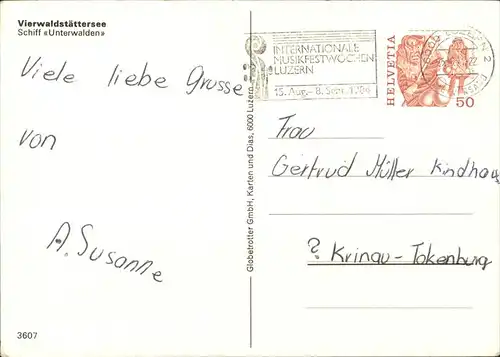 Vierwaldstättersee
Schiff «Unterwalden»
Viele liebe Grüsse
von
A. Susanne
3607
Globetrotter GmbH, Karten und Dias, 6000 Luzern
INTERNATIONALE
MUSIKFESTWOCHEN
LUZERN
15. Aug. - 8. Sept.
HELVETIA
50
LUZERN 2
Frau
Gertrud Müller Kindhau
? Krinau-Tokenburg